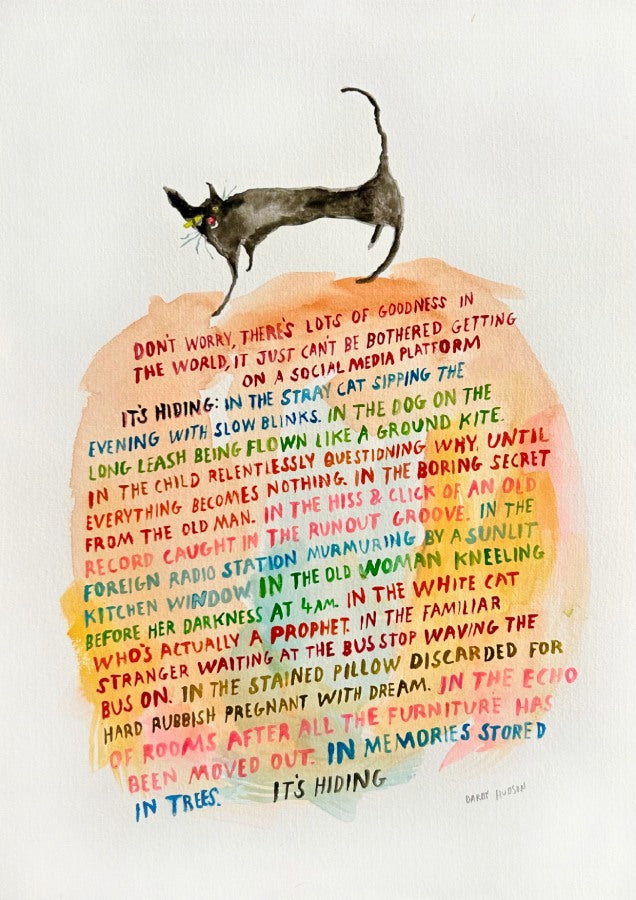 DON'T WORRY, THERE'S LOTS OF GOODNESS IN
THE WORLD, IT JUST CAN'T BE BOTHERED GETTING
ON A SOCIAL MEDIA PLATFORM
IT'S HIDING: IN THE STRAY CAT SIPPING THE
EVENING WITH SLOW BLINKS. IN THE DOG ON THE
LONG LEASH BEING FLOWN LIKE A GROUND KITE.
IN THE CHILD RELENTLESSLY QUESTIONING WHY. UNTIL
EVERYTHING BECOMES NOTHING. IN THE BORING SECRET
FROM THE OLD MAN. IN THE HISS & CLICK OF AN OLD
RECORD CAUGHT IN THE RUNOUT GROOVE. IN THE
FOREIGN RADIO STATION MURMURING BY A SUNLIT
KITCHEN WINDOW. IN THE OLD WOMAN KNEELING
BEFORE HER DARKNESS AT 4AM. IN THE WHITE CAT
WHO'S ACTUALLY A PROPHET. IN THE FAMILIAR
STRANGER WAITING AT THE BUS STOP WAVING THE
BUS ON. IN THE STAINED PILLOW DISCARDED FOR
HARD RUBBISH PREGNANT WITH DREAM. IN THE ECHO
OF ROOMS AFTER ALL THE FURNITURE HAS
BEEN MOVED OUT. IN MEMORIES STORED
IN TREES. IT'S HIDING
DARBY HUDSON